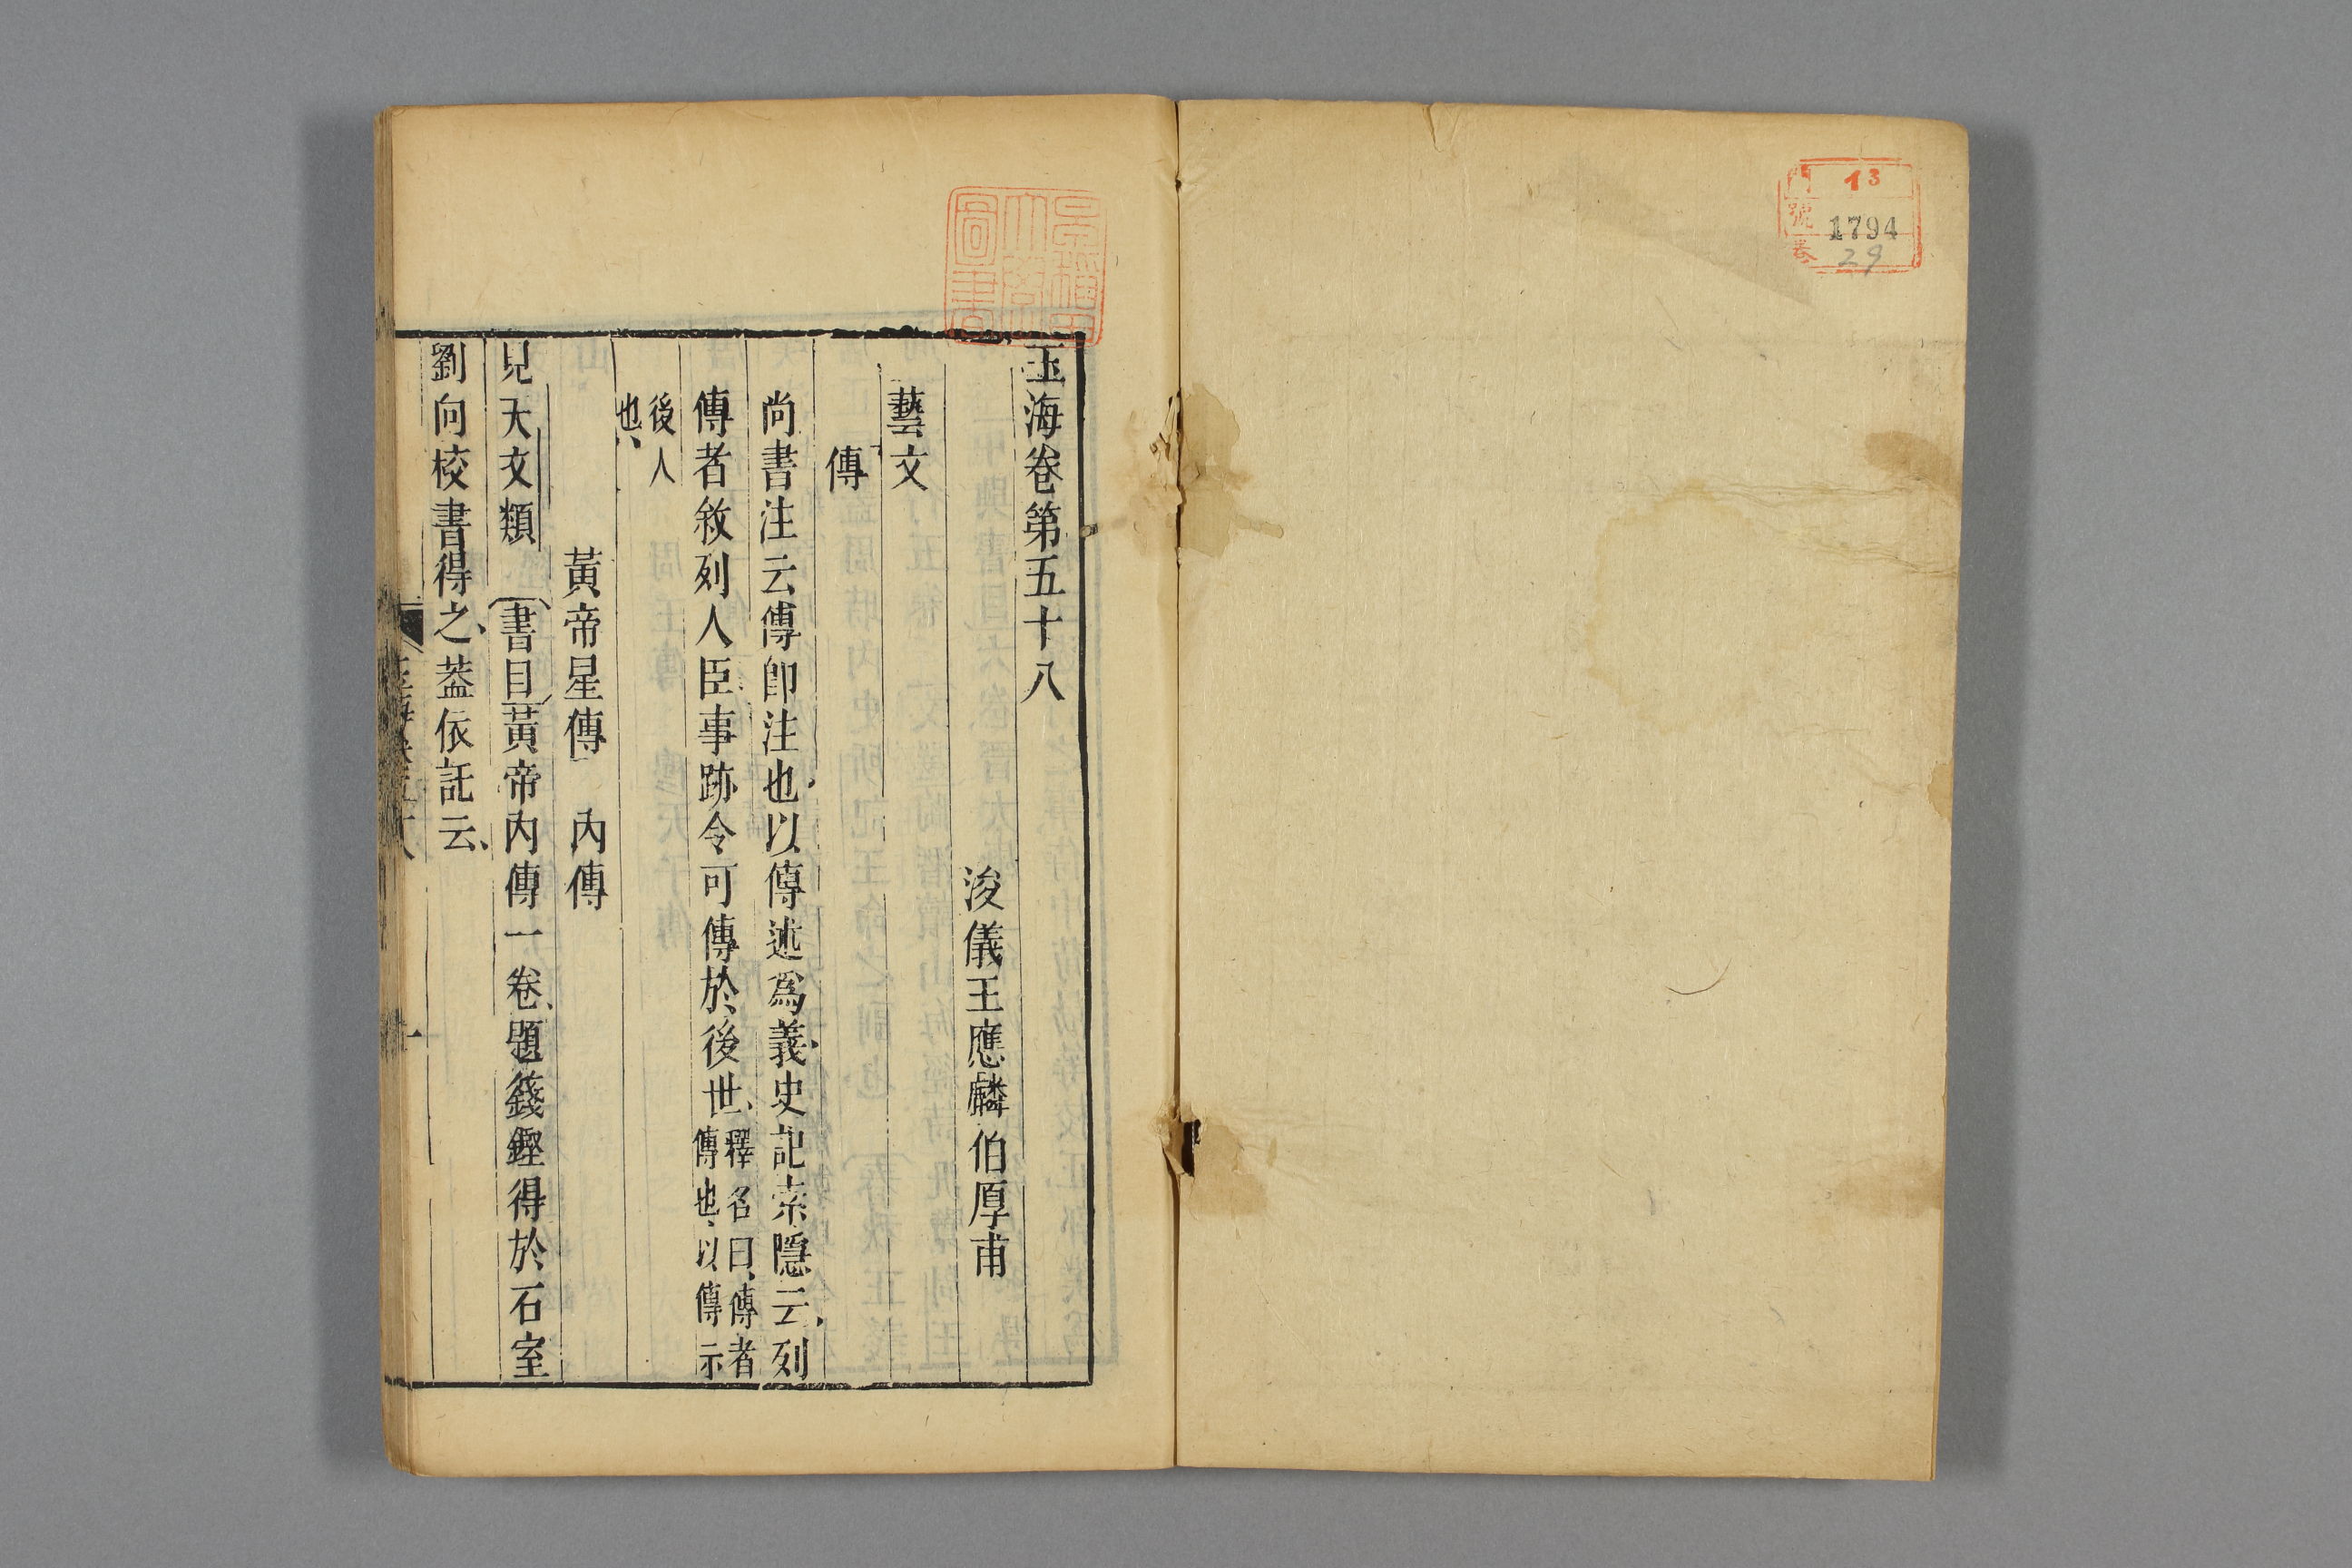 門 13
號 1794
卷 29
玉海卷第五十八
浚儀王應麟伯厚甫
藝文
傳
尚書注云傳卽注也以傳述爲義史記索隱云列
傳者敘列人臣事跡令可傳於後世釋名曰傳者傳也以傳示
後人也
黃帝星傳 內傳
見天文類 書目黃帝內傳一卷題籛鏗得於石室
劉向校書得之葢依託云